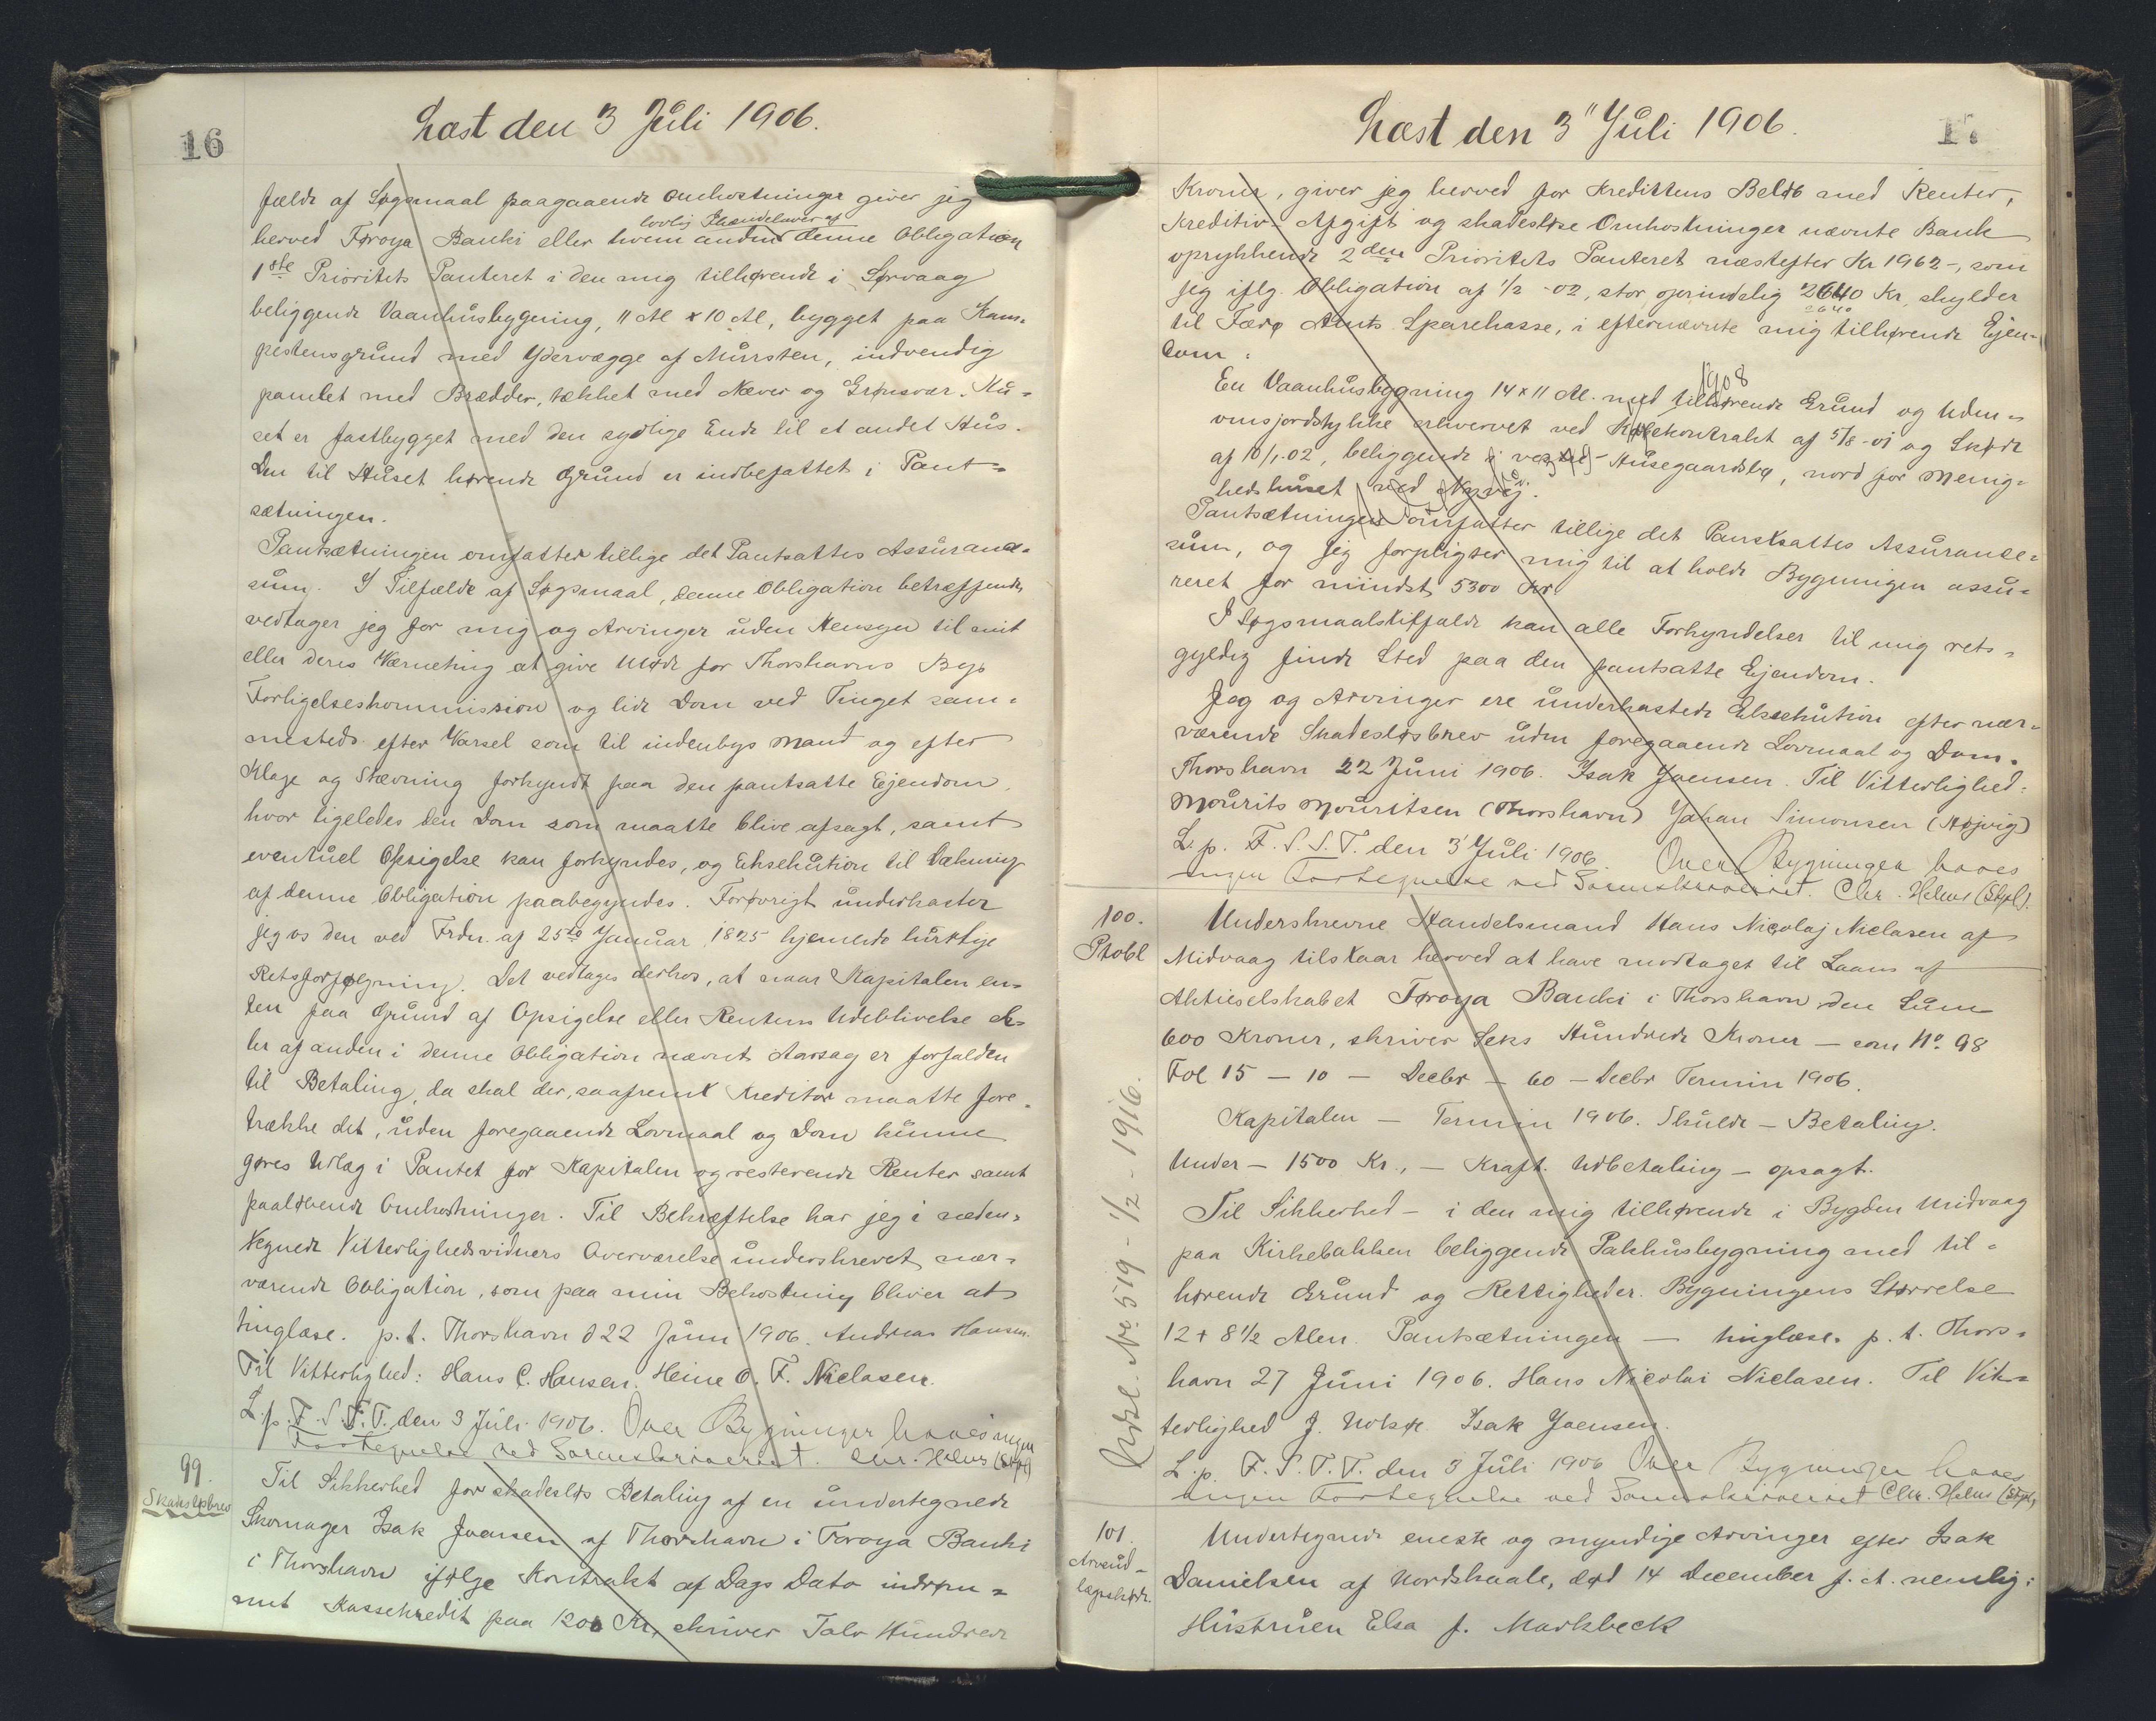 16
Læst den 3 Juli 1906.
fælde af Søgsmaal paagaaende Omkostninger giver jeg
lovlig Ihændehaver af
herved Føroya Banki eller hvem anden denne Obligation
1ste Prioritets Panteret i den mig tilhørende i Sørvaag
beliggende Vaanhusbygning, 11 Al x 10 Al, bygget paa Kam-
pestensgrund med Ydervægge af Mursten, indvendig
panelet med Brædder, tækket med Næver og Grønsvær. Hu-
set er fastbygget med den sydlige Ende til et andet Hus.
Den til Huset hørende Grund er indbefattet i Pant-
sætningen.
Pantsætningen omfatter tillige det Pantsattes Assurance-
sum. I Tilfælde af Søgsmaal, denne Obligation betræffende,
vedtager jeg for mig og Arvinger uden Hensyn til mit
eller deres Værneting at give Møde for Thorshavns Bys
Forligelseskommission og lide Dom ved Tinget sam-
mesteds efter Varsel som til indenbys Mand og efter
Klage og Stævning forkyndt paa den pantsatte Ejendom,
hvor ligeledes den Dom som maatte blive afsagt, samt
eventuel Opsigelse kan forkyndes, og Eksekution til Dækning
af denne Obligation paabegyndes. Forøvrigt underkaster
jeg os den ved Frdn. af 25de Januar 1825 hjemlede hurtige
Retsforfølgning. Det vedtages derhos, at naar Kapitalen en-
ten paa Grund af Opsigelse eller Rentens Udeblivelse el-
ler af anden i denne Obligation nævnt Aarsag er forfalden
til Betaling, da skal der, saafremt Kreditor maatte fore-
trække det, uden foregaaende Lovmaal og Dom kunne
gøres Udlæg i Pantet for Kapitalen og resterende Renter samt
paaløbende Omkostninger. Til Bekræftelse har jeg i neden-
tegnede Vitterlighedsvidners Overværelse underskrevet nær-
værende Obligation, som paa min Bekostning bliver at
tinglæse. p.t. Thorshavn d 22 Juni 1906. Andreas Hansen.
Til Vitterlighed: Hans C. Hansen. Heine O. F. Niclasen.
L. p. F. S. T. T. den 3 Juli 1906. Over Bygninger haves ingen
Fortegnelse ved Sorenskriveriet. Chr. Helms (Stpl)
99.
Skadesløsbrev
Til Sikkerhed for skadesløs Betaling af en undertegnede
Skomager Isak Joensen af Thorshavn i Føroya Banki
i Thorshavn ifølge Kontrakt af Dags Dato indrøm-
met Kassekredit paa 1200 Kr, skriver Tolv Hundrede
17
Læst den 3" Juli 1906.
Kroner, giver jeg herved for Kredittens Beløb med Renter,
Kreditiv-Afgift og skadesløse Omkostninger nævnte Bank
oprykkende 2den Prioritets Panteret næstefter Kr 1962-, som
jeg iflg. Obligation af 1/2 -02, stor oprindelig 2640 Kr, skylder
2640
til Færø Amts Sparekasse, i efternævnte mig tilhørende Ejen-
dom:
1908
En Vaanhusbygning 14 x 11 Al. med tilhørende Grund og Uden-
omsjordstykke erhvervet ved Købekontrakt af 5/8-01 og Skøde
af 10/1-02, beliggende i Husegaardsbø, nord for Menig-
hedshuset ved Nyvej.
Pantsætningen omfatter tillige det Pantsattes Assurance-
sum, og jeg forpligter mig til at holde Bygningen assu-
reret for mindst 5300 Kr.
I Søgsmaalstilfælde kan alle Forkyndelser til mig rets-
gyldig finde Sted paa den pantsatte Ejendom.
Jeg og Arvinger ere underkastede Eksekution efter nær-
værende Skadesløsbrev uden foregaaende Lovmaal og Dom.
Thorshavn 22 Juni 1906. Isak Joensen. Til Vitterlighed:
Mourits Mouritsen (Thorshavn) Johan Simonsen (Højvig)
L. p. F. S. S. T. den 3' Juli 1906. Over Bygningen haves
ingen Fortegnelse ved Sorenskriveriet. Chr. Helms (Stpl).
100.
Ptobl
Underskrevne Handelsmand Hans Nicolaj Niclasen af
Midvaag tilstaar herved at have modtaget til Laans af
Aktieselskabet Føroya Banki i Thorshavn den Sum
600 Kroner, skriver Seks Hundrede Kroner — som No. 98
Fol 15 — 10 — Decbr — 60 — Decbr Termin 1906.
Kapitalen — Termin 1906. Skulde — Betaling.
Under — 1500 Kr., — Kraft. Udbetaling — opsagt.
Til Sikkerhed — i den mig tilhørende i Bygden Midvaag
paa Kirkebakken beliggende Pakhusbygning med til-
hørende Grund og Rettigheder. Bygningens Størrelse
12 + 8 1/2 Alen. Pantsætningen — tinglæse. p. t. Thors-
havn 27 Juni 1906. Hans Nicolai Niclasen. Til Vit-
terlighed J. Nolsøe. Isak Joensen.
L. p. F. S. T. T. den 3 Juli 1906 Over Bygningen haves
ingen Fortegnelse ved Sorenskriveriet Chr. Helms (Stpl)
No 519 - 1/2 - 1916.
101.
Arveud-
lægsskøde.
Undertegnede eneste og myndige Arvinger efter Isak
Danielsen af Nordskaale, død 14 December f. A. nemlig:
Hustruen Elsa f. Markbeck